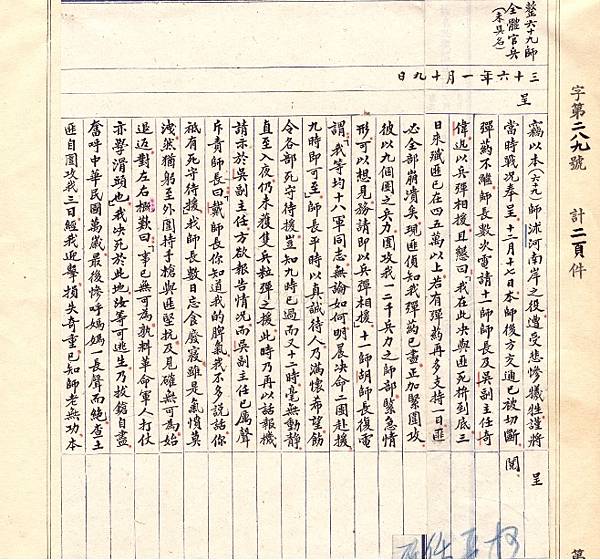 字第二八九號 計二頁 件
第
整六十九師
全體官兵
(未具名)
三十六年一月十九日
呈
竊以本(六九)師沭河南岸之役遭受悲慘犧牲謹將 呈
當時戰況奉呈十二月十七日本師後方交通已被切斷 閱
彈葯不繼師長數次電請十一師師長及吳副主任奇
偉迅以兵彈相援且懇曰「我在此決與匪死拚到底三
日來殲匪已在四五萬以上若有彈葯再多支持一日匪
必全部崩潰矣現匪偵知我彈葯已盡正加緊圍攻
彼以九個團之兵力圍攻我一二千兵力之師部緊急情
形可以想見務請即以兵彈相援」十一師胡師長復電
謂「我等均十八軍同志無論如何明晨決命二團赴援
九時即可至」師長平時以真誠待人乃滿懷希望飭
令各部死守待援豈知九時已過而又十二時毫無動靜
直至入夜仍未獲隻兵粒彈之援此時乃再以話報機
請示於吳副主任方欲報告情況而吳副主任已厲聲
斥責師長曰「戴師長你知道我的脾氣我不多說話你
祇有死守待援」我師長數日忘食廢寢雖是氣憤莫
洩然猶躬至外圍持手槍與匪堅抗及見確無可為始
退返對左右撫歎曰「事已無可為孰料革命軍人打仗
亦學滑頭也」「我決死於此地汝等可逃生乃拔鎗自盡
奮呼中華民國萬歲最後慘呼媽媽一長聲而絕查土
匪自圍攻我三日經我迎擊損失奇重已知師老無功本